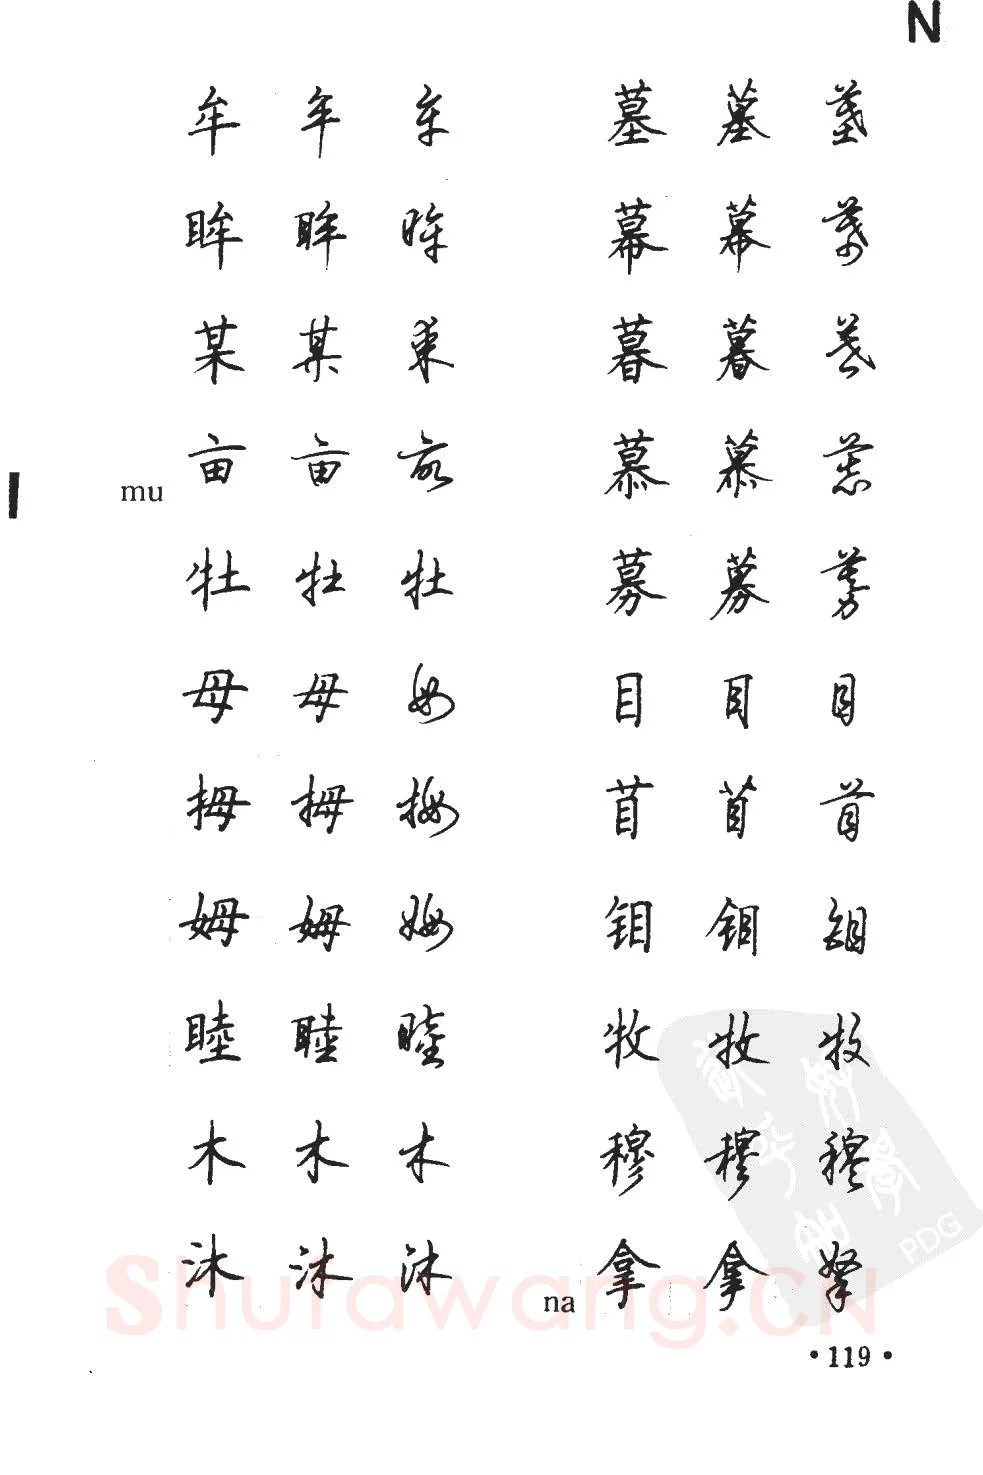 N
牟 牟 牟
眸 眸 眸
某 某 某
亩 亩 亩
mu
牡 牡 牡
母 母 母
拇 拇 拇
姆 姆 姆
睦 睦 睦
木 木 木
沐 沐 沐
墓 墓 墓
幕 幕 幕
暮 暮 暮
慕 慕 慕
募 募 募
目 目 目
苜 苜 苜
钼 钼 钼
牧 牧 牧
穆 穆 穆
na 拿 拿 拿
Shufawang.CN
PDG
·119·